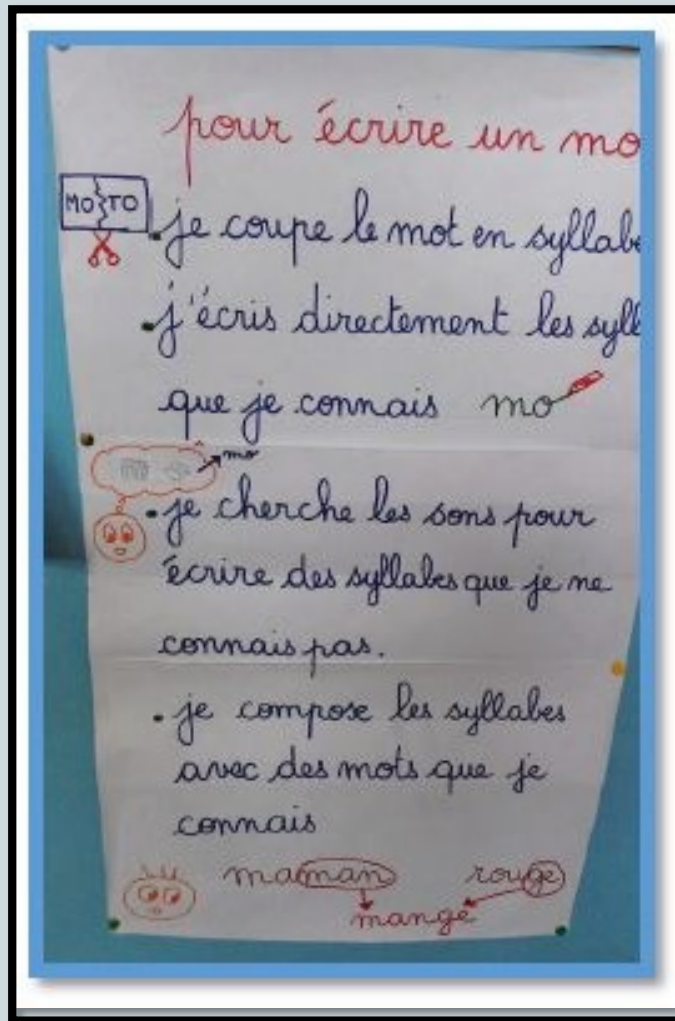 pour écrire un mo
MO TO
je coupe le mot en syllabe
j'écris directement les syll
que je connais mo
mo
je cherche les sons pour
écrire des syllabes que je ne
connais pas.
je compose les syllabes
avec des mots que je
connais
maman rouge
mange